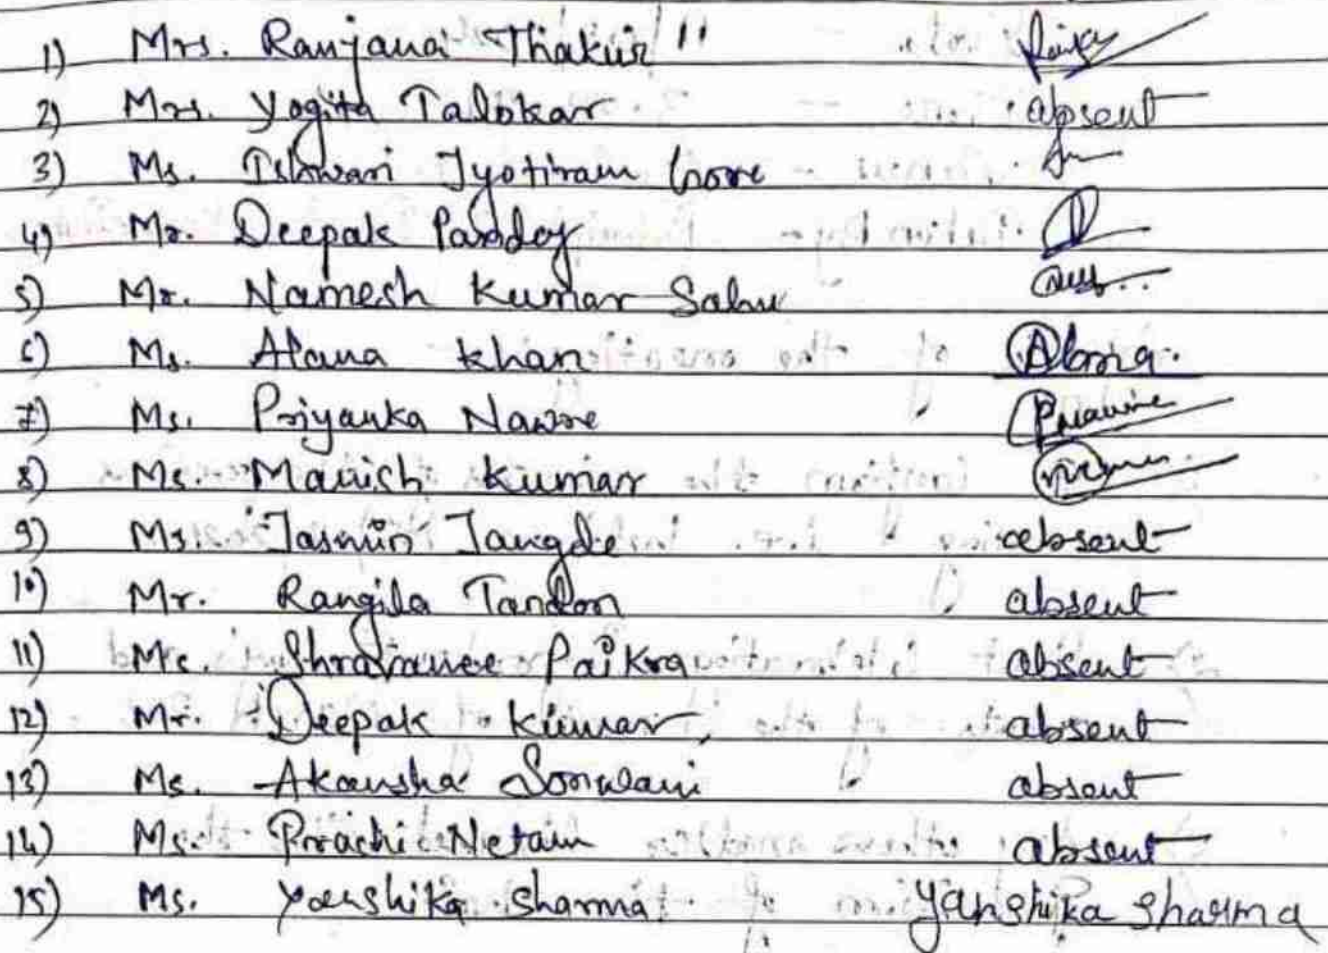 1) Mrs. Ranjana Thakur "
2) Mrs. Yogita Talokar absent
3) Ms. Ishwari Jyotiram Gore
4) Mr. Deepak Pandey
5) Mr. Namesh Kumar Sahu
6) Ms. Alana Khan
7) Ms. Priyanka Nawre
8) Ms. Manish Kumar
9) Ms. Jasmin Jangde absent
10) Mr. Rangila Tandon absent
11) Ms. Paikra absent
12) Mr. Deepak Kumar absent
13) Ms. Akansha Sonwani absent
14) Ms. Prachi Netam absent
15) Ms. Yanshika Sharma Yanshika Sharma